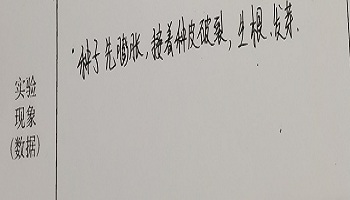 种子先膨胀,接着种皮破裂,生根,发芽.
实验
现象
(数据)